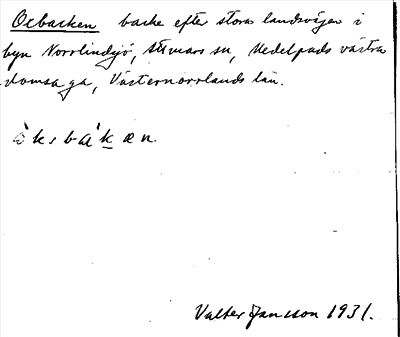 Oxbacken backe efter stora landsvägen i
byn Norrlindsjö, Attmars sn, Medelpads västra
domsaga, Västernorrlands län.
ò̀ksbàk̲æn.
Valter Jansson 1931.